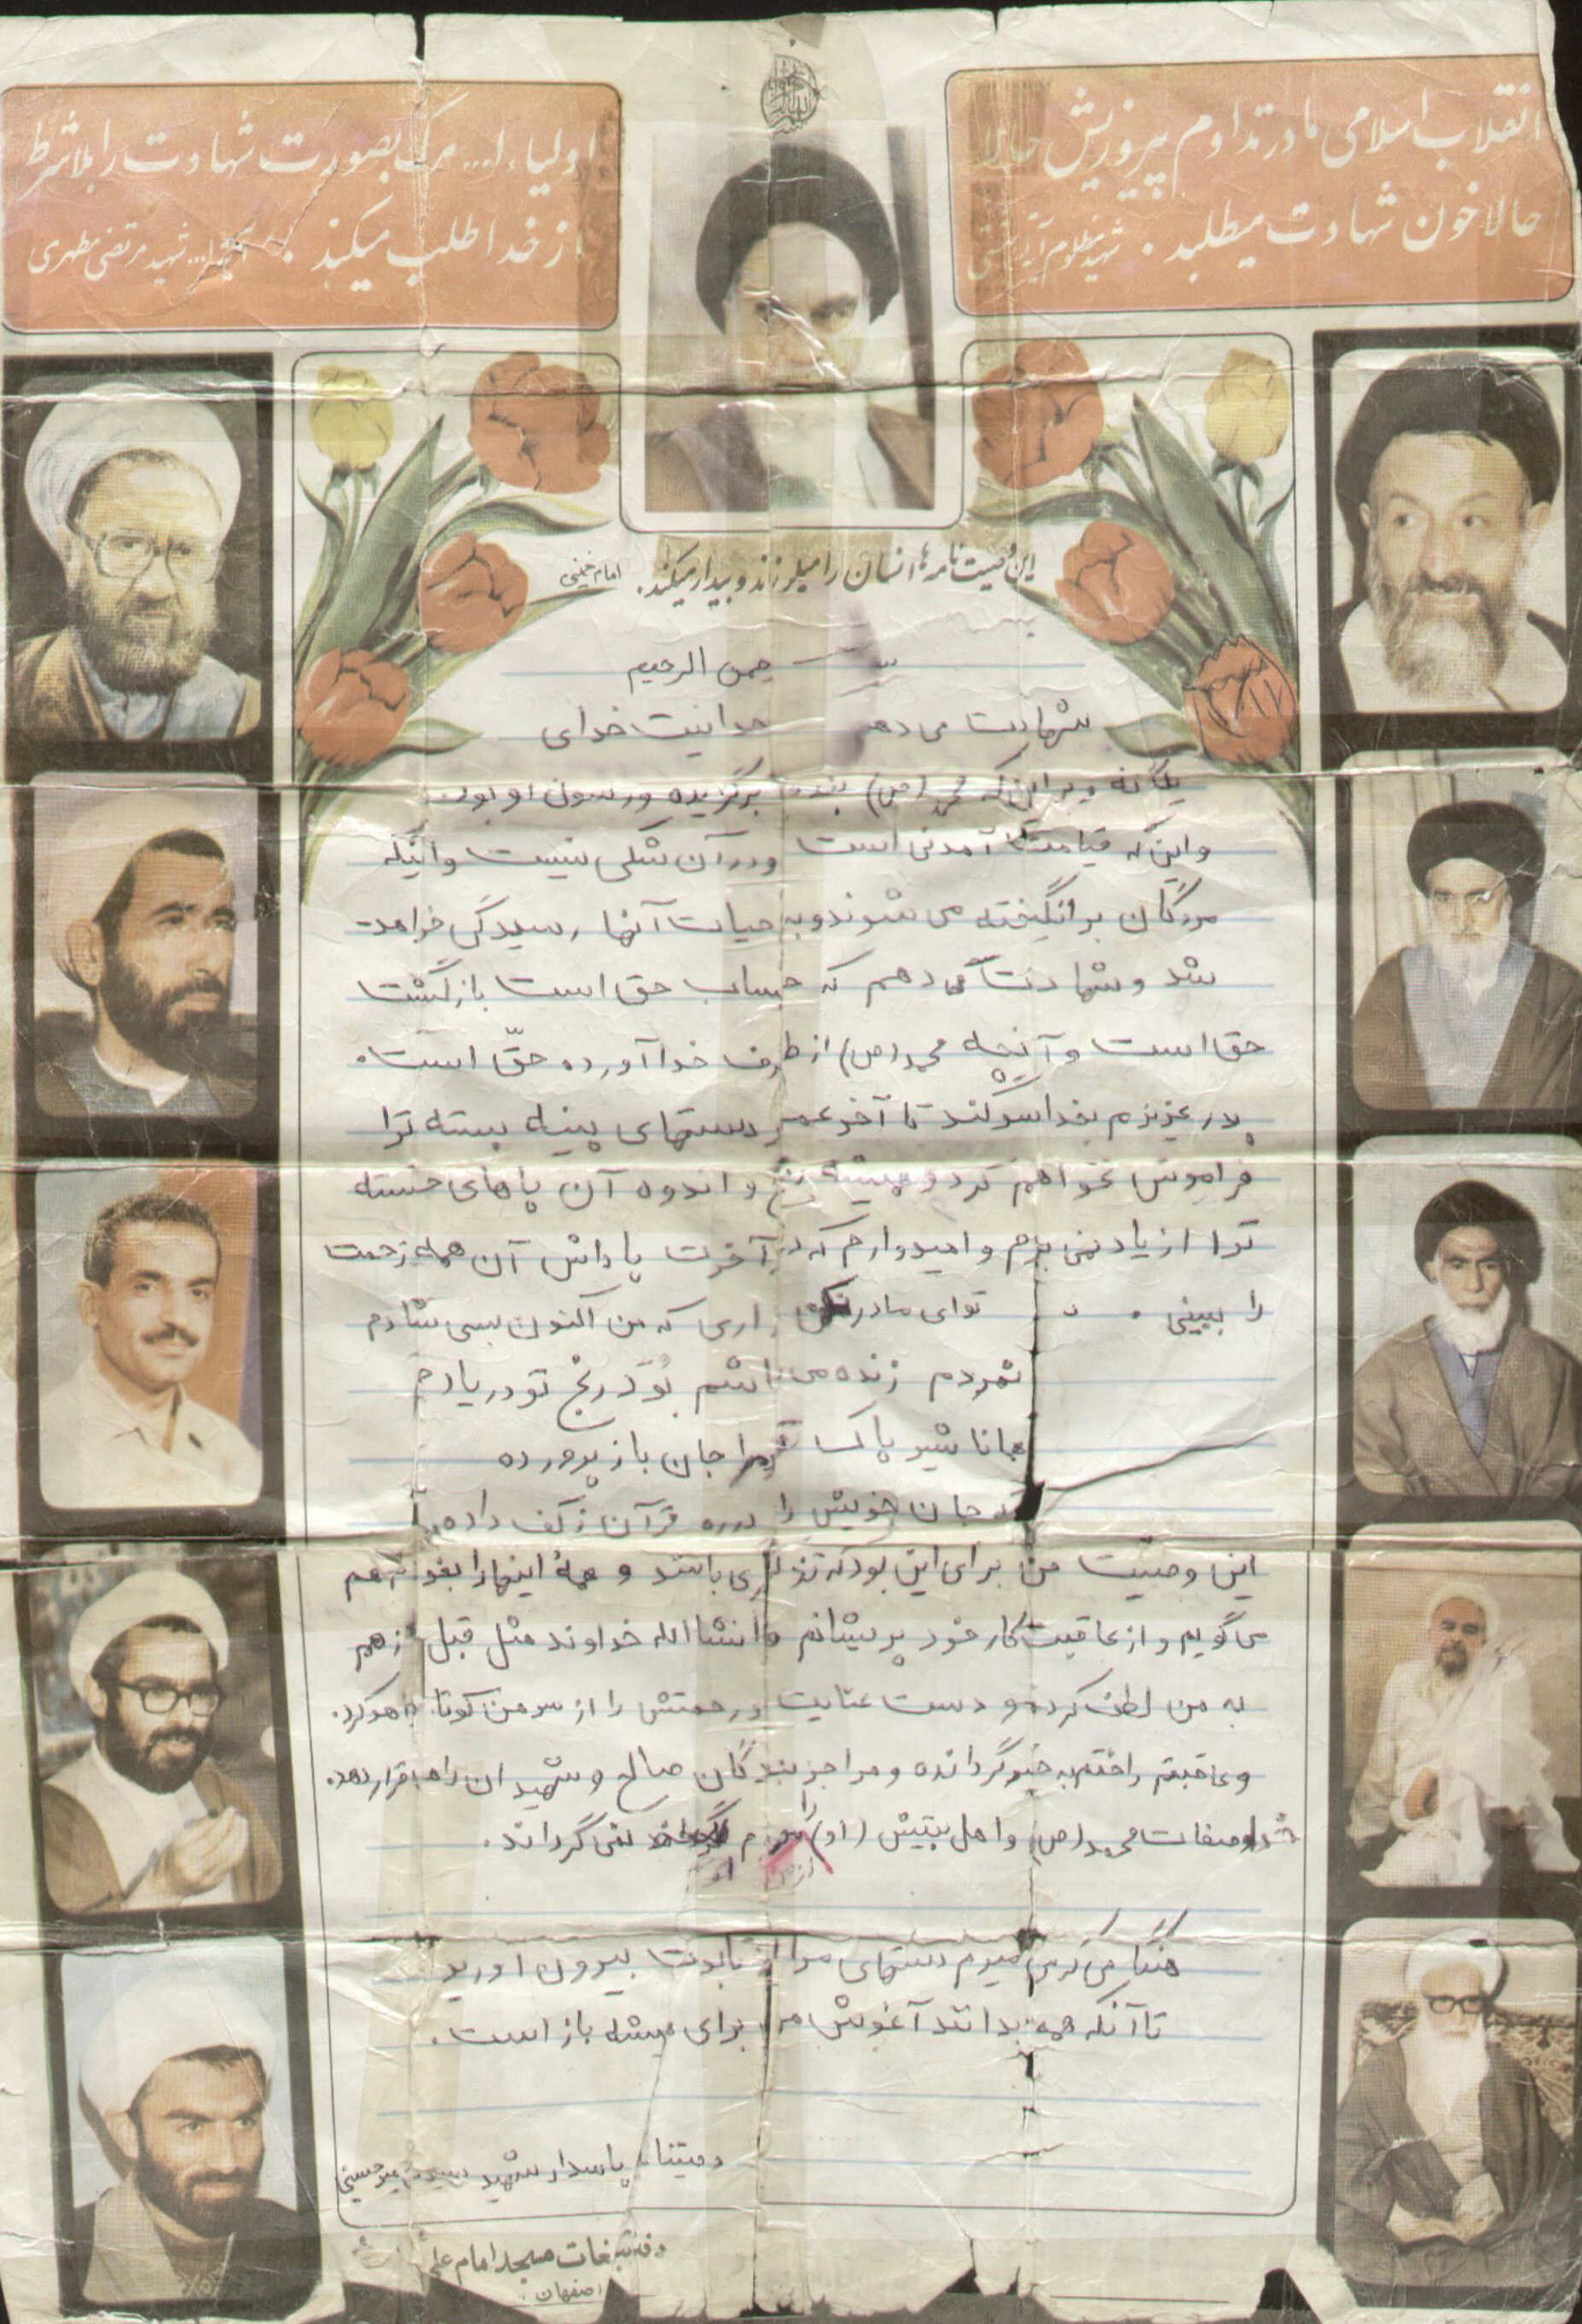 انقلاب اسلامی ما در تداوم پیروزیش حالا
حالا خون شهادت میطلبد . شهید مظلوم
اولیاء ا... مرگ بصورت شهادت را بلاشرط
از خدا طلب میکنند . شهید مرتضی مطهری
این وصیت نامه ها انسان را میلرزاند و بیدار میکند. امام خمینی
الرحیم
شهادت می دهم خدای
یگانه و بر این که محمد (ص) بنده برگزیده و رسول او بود.
و این که قیامت آمدنی است و در آن شکی نیست و اینکه
مردگان برانگیخته می شوند و به حیات آنها رسیدگی خواهد
شد و شهادت می دهم که حساب حق است بازگشت
حق است و آنچه محمد (ص) از طرف خدا آورده حقّ است.
پدر عزیزم بخدا سوگند تا آخر عمر دستهای پینه بسته ترا
فراموش نخواهم کرد و همیشه رنج و اندوه آن پاهای خسته
ترا از یاد نمی برم و امیدوارم که در آخرت پاداش آن همه زحمت
را ببینی . تو ای مادر که من اکنون بسی شادم
نمردم زنده می باشم بُوَد رنج تو در یادم
همانا شیر پاکت مرا جان باز پرورده
که جان خویش را در ره قرآن ز کف دادم
این وصیت من برای این بود که تذکری باشد و همهٔ اینها را بخودم هم
می گویم و از عاقبت کار خود پریشانم و انشاالله خداوند مثل قبل از هم
به من لطف کرده و دست عنایت و رحمتش را از سر من کوتاه نخواهد کرد.
و عاقبتم را ختم به خیر گردانده و مرا جز بندگان صالح و شهیدان راهش قرار دهد.
محمد (ص) و اهل بیتش (او) را نمی گرداند.
هنگامی که می میرم دستهای مرا از تابوت بیرون آورید
تا آنکه همه بدانند آغوش من برای همیشه باز است.
پاسدار شهید میرحسینی
دفتر تبلیغات مسجد امام علی
اصفهان